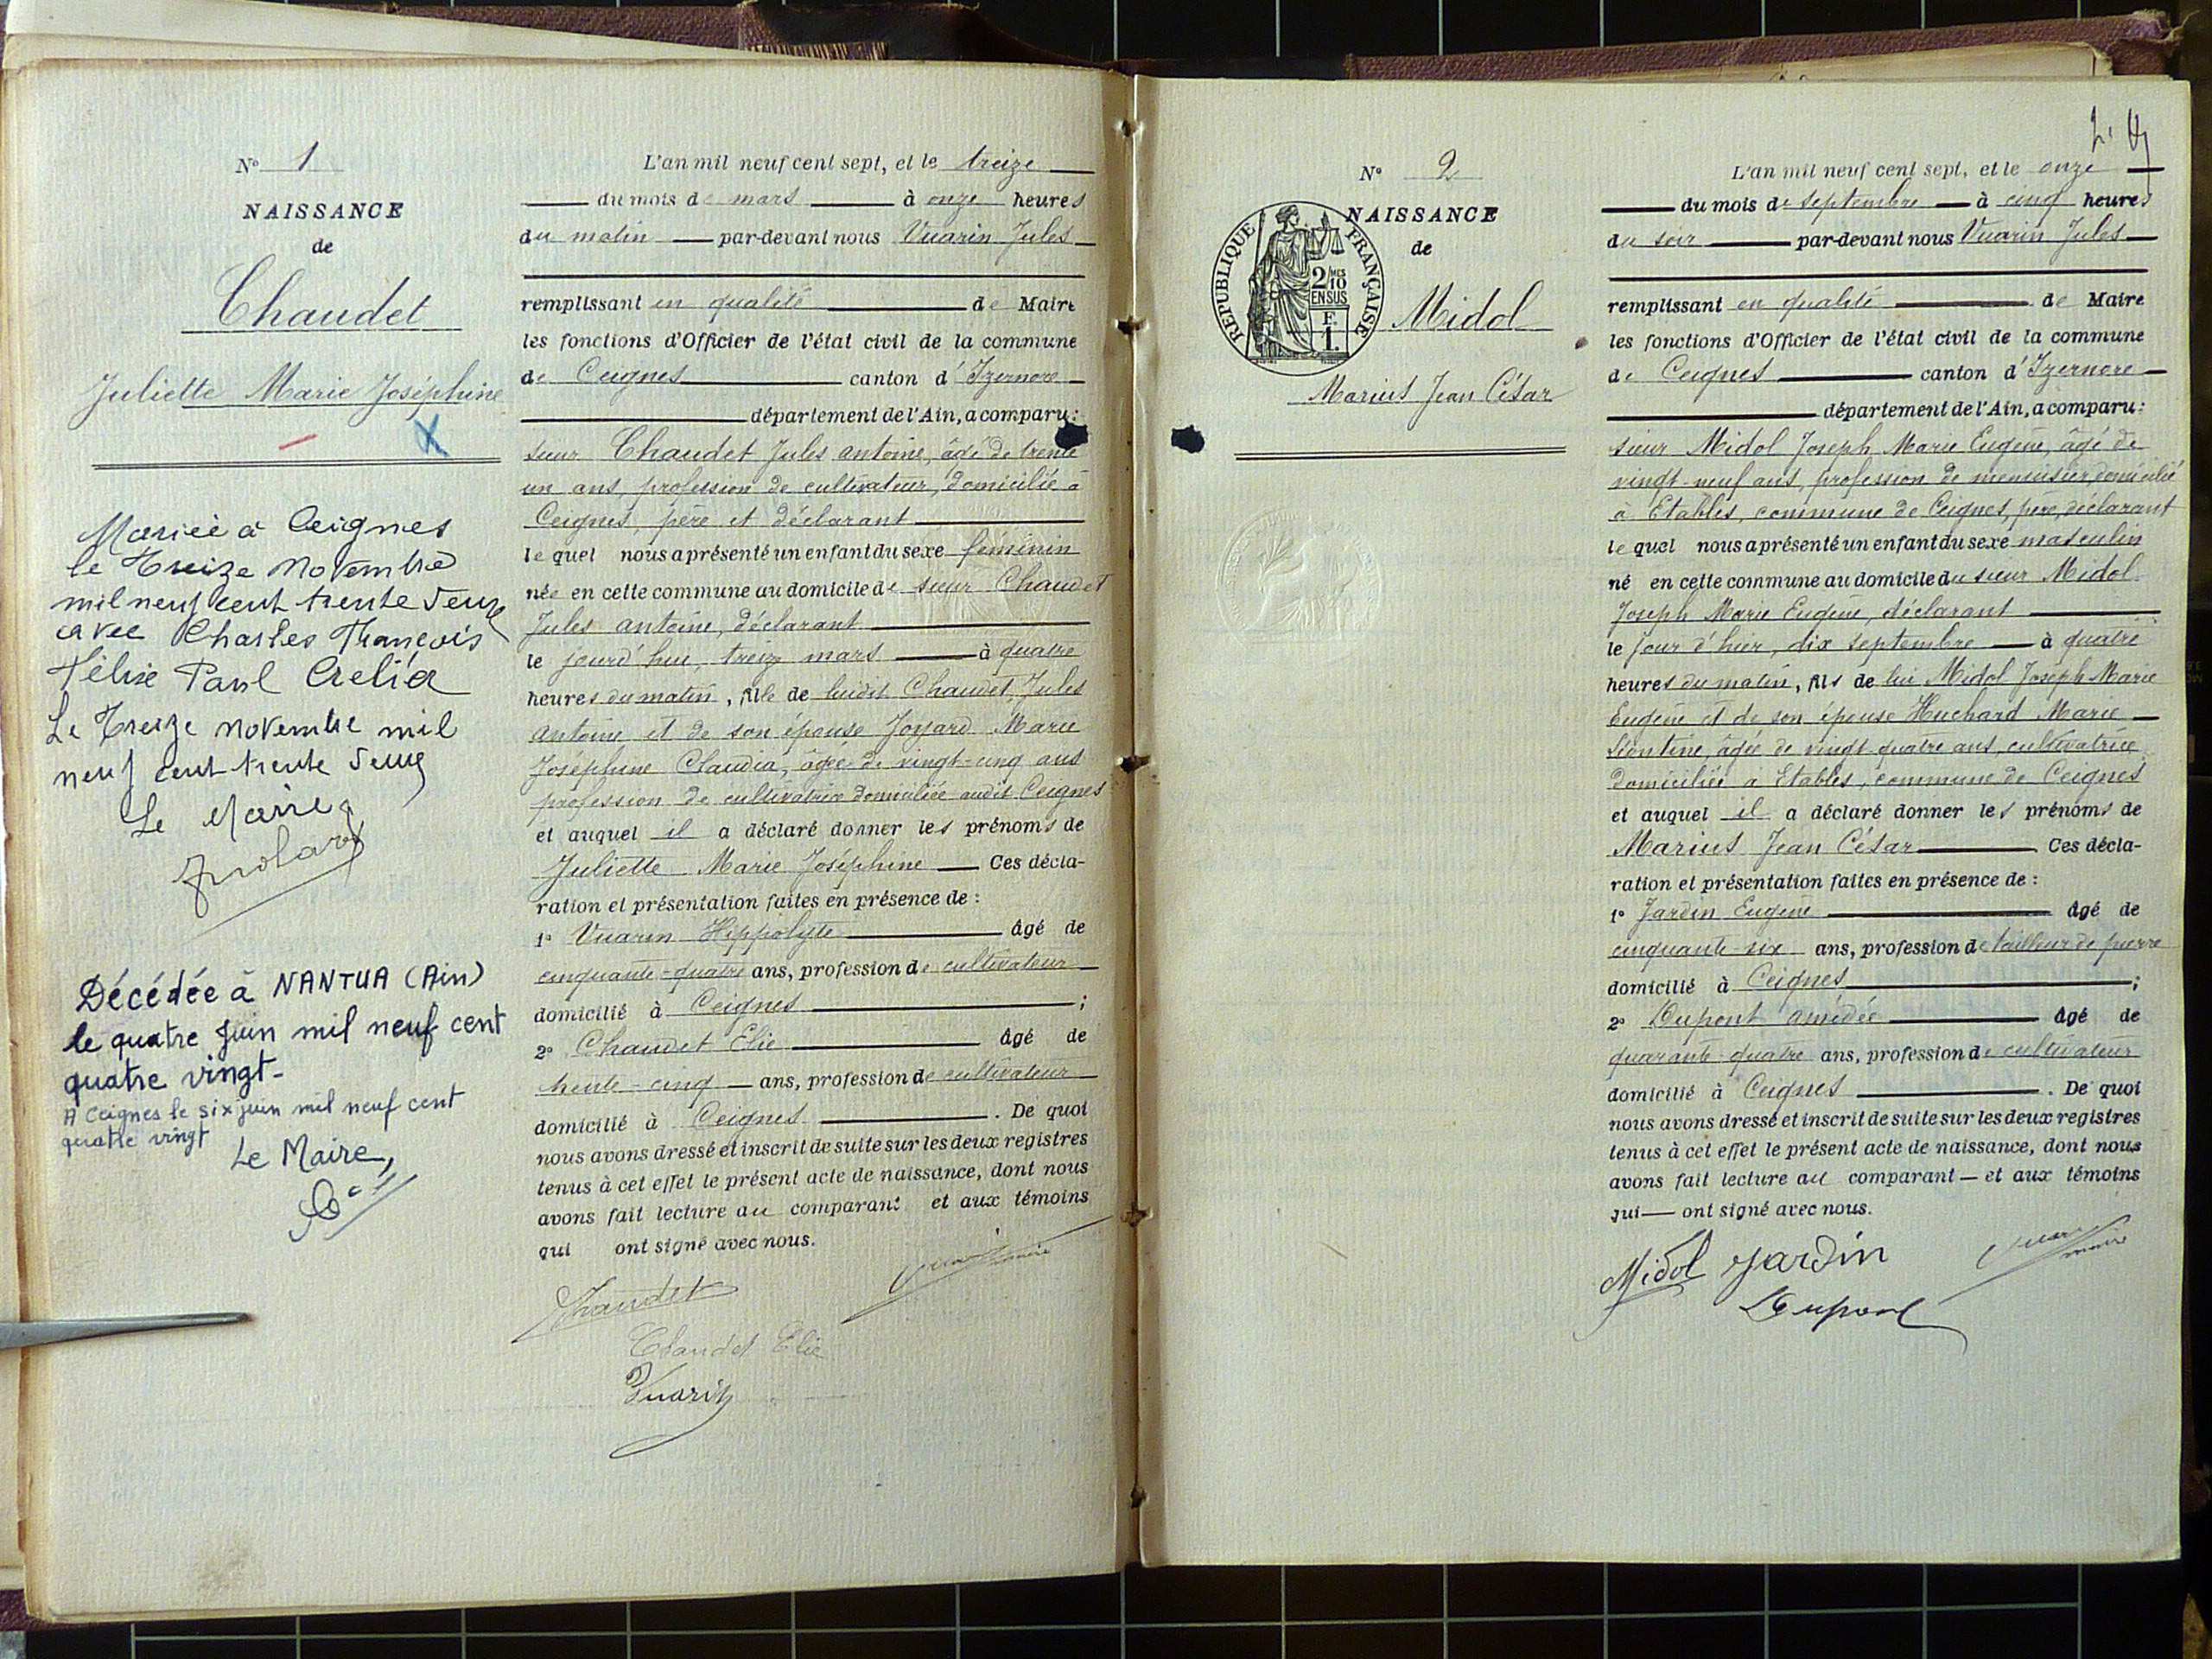 N° 1
NAISSANCE
de
Chaudet
Juliette Marie Joséphine
Mariée à Ceignes
le Treize Novembre
mil neuf cent trente deux
avec Charles François
Félix Paul
Le Treize novembre mil
neuf cent trente deux
Le Maire
Décédée à NANTUA (Ain)
le quatre juin mil neuf cent
quatre vingt-
A Ceignes le six juin mil neuf cent
quatre vingt
Le Maire,
L'an mil neuf cent sept, et le treize
du mois de mars à onze heures
du matin par-devant nous Vuarin Jules
remplissant en qualité de Maire
les fonctions d'Officier de l'état civil de la commune
de Ceignes canton d'Izernore
département de l'Ain, a comparu :
sieur Chaudet Jules antoine, âgé de trente
un ans, profession de cultivateur, domicilié à
Ceignes, père et déclarant
lequel nous a présenté un enfant du sexe féminin
née en cette commune au domicile de sieur Chaudet
Jules antoine, déclarant
le jourd'hui, treize mars à quatre
heures du matin, fille de luidit Chaudet, Jules
antoine et de son épouse Joyard Marie
Joséphine Claudia, âgée de vingt-cinq ans
profession de cultivatrice domiciliée audit Ceignes
et auquel il a déclaré donner les prénoms de
Juliette Marie Joséphine Ces décla-
ration et présentation faites en présence de :
1° Vuarin Hippolyte âgé de
cinquante-quatre ans, profession de cultivateur
domicilié à Ceignes ;
2° Chaudet Elie âgé de
trente-cinq ans, profession de cultivateur
domicilié à Ceignes . De quoi
nous avons dressé et inscrit de suite sur les deux registres
tenus à cet effet le présent acte de naissance, dont nous
avons fait lecture au comparant et aux témoins
qui ont signé avec nous.
Chaudet
Vuarin maire
Chaudet Elie
Vuarin
N° 2
NAISSANCE
de
REPUBLIQUE FRANÇAISE
2/10 MES
EN SUS
F.
1.
Midol
Marius Jean César
L'an mil neuf cent sept, et le onze
du mois de septembre à cinq heures
du soir par-devant nous Vuarin Jules
remplissant en qualité de Maire
les fonctions d'Officier de l'état civil de la commune
de Ceignes canton d'Izernore
département de l'Ain, a comparu :
sieur Midol Joseph Marie Eugène, âgé de
vingt-neuf ans, profession de menuisier, domicilié
à Etables, commune de Ceignes, père, déclarant
lequel nous a présenté un enfant du sexe masculin
né en cette commune au domicile du sieur Midol
Joseph Marie Eugène, déclarant
le jour d'hier, dix septembre à quatre
heures du matin, fils de lui Midol Joseph Marie
Eugène et de son épouse Huchard Marie
Léontine, âgée de vingt-quatre ans, cultivatrice
domiciliée à Etables, commune de Ceignes
et auquel il a déclaré donner les prénoms de
Marius Jean César Ces décla-
ration et présentation faites en présence de :
1° Jardin Eugène âgé de
cinquante-six ans, profession de tailleur de pierre
domicilié à Ceignes ;
2° Dupont amédée âgé de
quarante-quatre ans, profession de cultivateur
domicilié à Ceignes . De quoi
nous avons dressé et inscrit de suite sur les deux registres
tenus à cet effet le présent acte de naissance, dont nous
avons fait lecture au comparant et aux témoins
qui ont signé avec nous.
Midol Jardin
Vuarin maire
Dupont